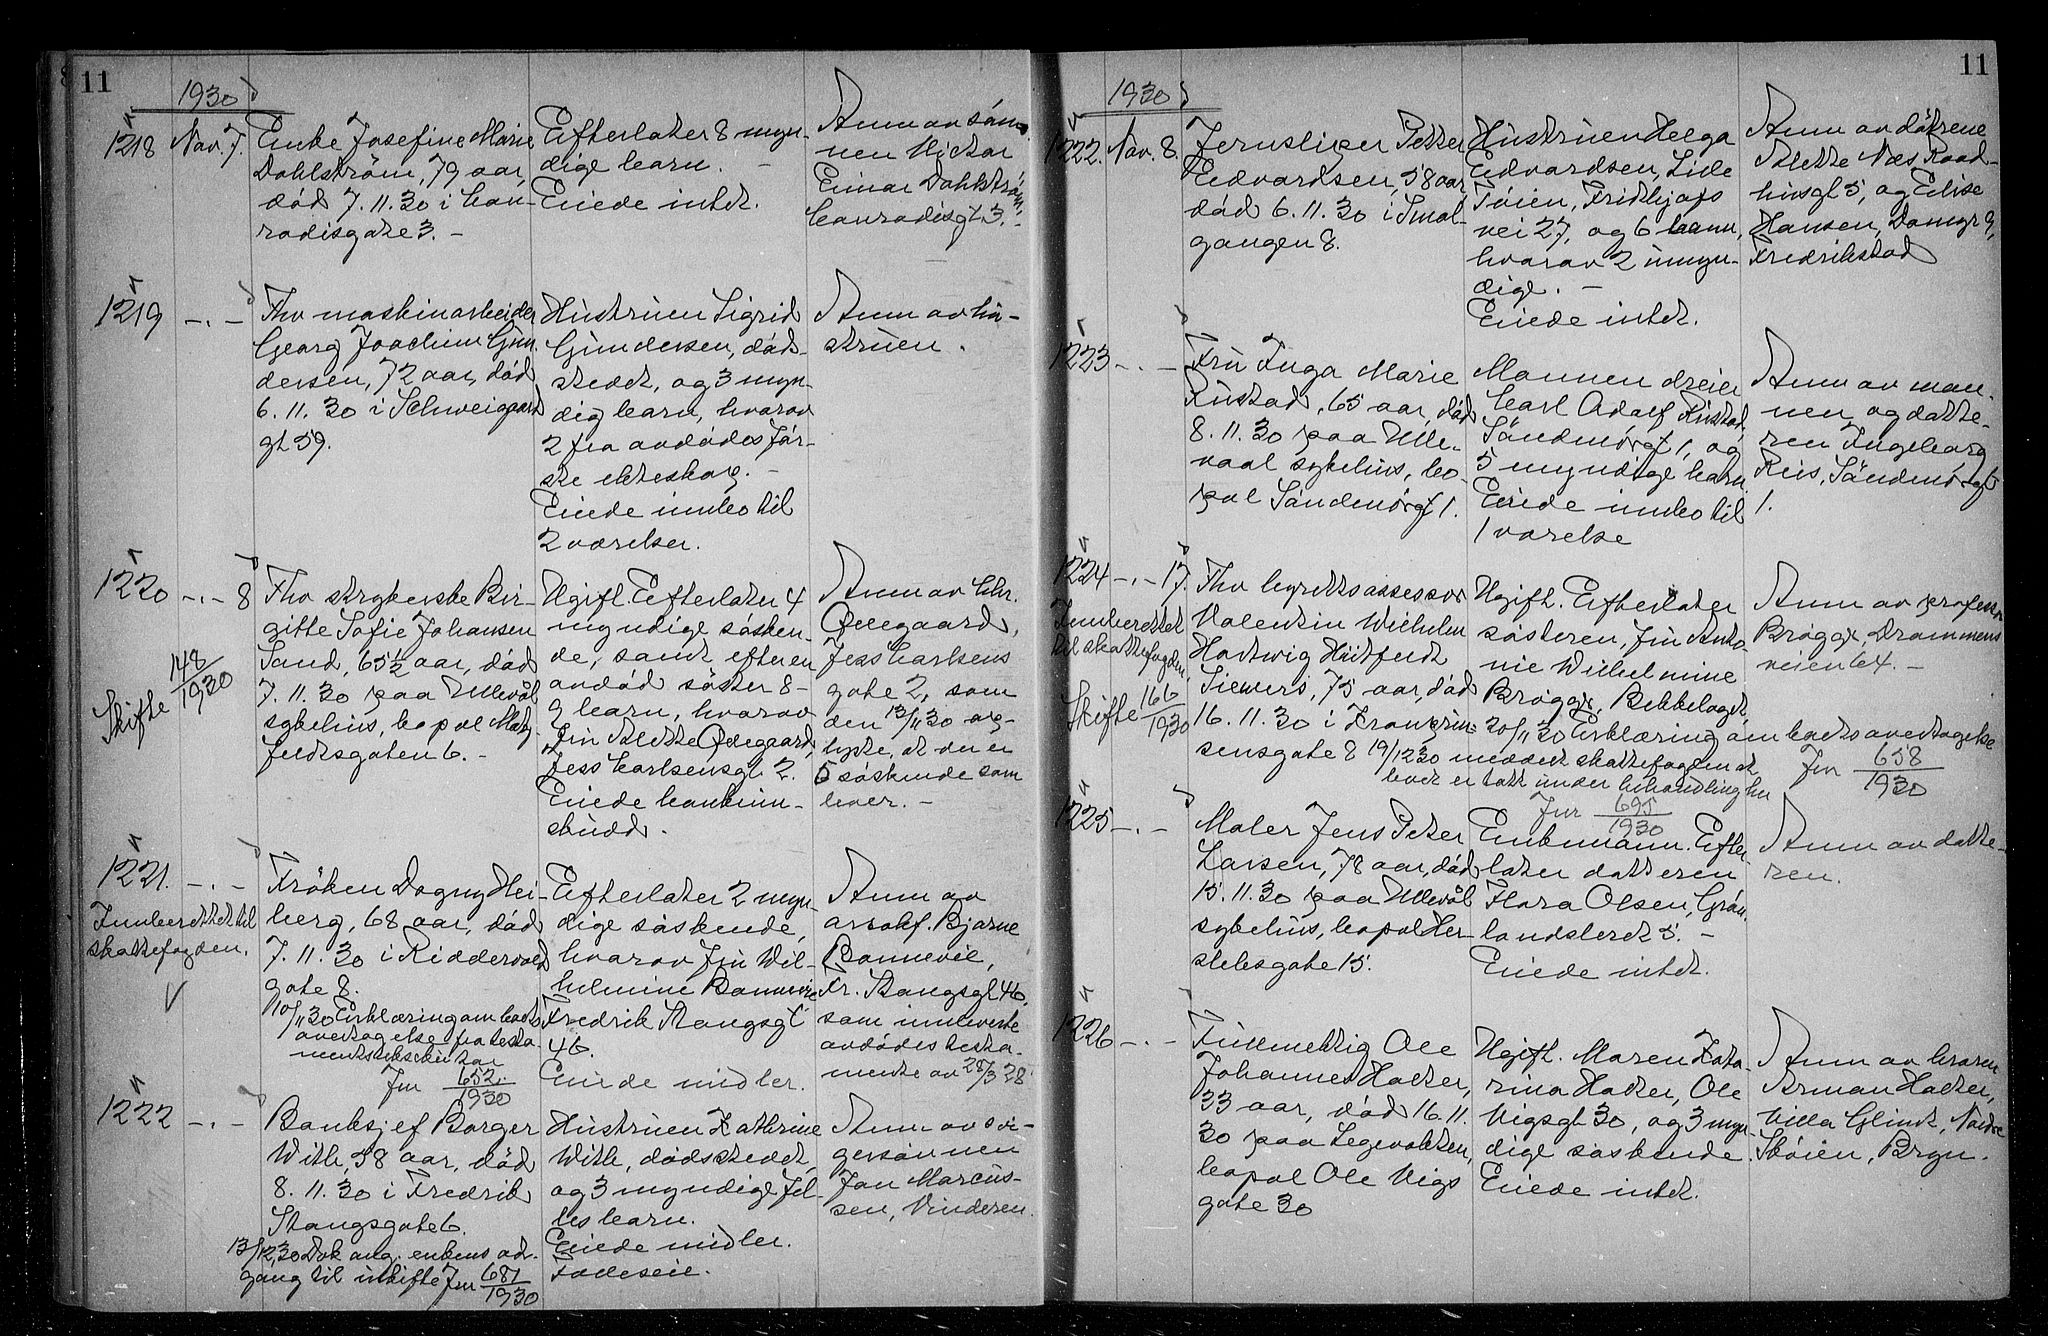 11
1930
1218 Nov. 7. Enke Josefine Marie
Dahlström, 79 aar,
död 7.11.30 i Con-
radisgate 3. -
Efterlater 8 myn-
dige barn. -
Eiede intet.
Anm av søn-
nen Victor
Einar Dahlstrøm,
Conradisgt 3. -
1219 -.- Fhv maskinarbeider
Georg Joachim Gun-
dersen, 72 aar, död
6.11.30 i Schweigaard
gt 59.
Hustruen Sigrid
Gundersen, døds-
stedet, og 3 myn-
dig barn, hvorav
2 fra avdødes før-
ste ekteskap. -
Eiede innbo til
2 værelser.
Anm av hu-
struen.
1220 -.- 8
Skifte 148/1930
Fhv strykerske Bir-
gitte Sofie Johansen
Sand, 65½ aar, död
7.11.30 paa Ullevål
sykehus, bopæl
feldtsgaten 6. -
Ugift. Efterlater 4
myndige søsken-
de, samt efter en
avdød søster 8-
9 barn, hvorav
fru Alette Ødegaard,
Jess Carlsensgt 2.
Eiede
skudd.
Anm av Chr.
Ødegaard,
Jess Carlsens
gate 2, som
den 13/11 30 op-
lyste, at der er
5 søskende som
lever. -
1221. -.-
Innberettet til
skattefogden.
Frøken Dagny Hei-
berg, 68 aar, död
7.11.30 i Riddervold
gate 8.
10/11 30 Erklæring om boets
overtagelse fra testa-
Jnr 652/1930
Efterlater 2 myn-
dige søskende,
hvorav fru Wil-
helmine Bonnevie
Fredrik Stangsgt
46.
Eiede midler.
Anm av
advokf. Bjarne
Bonnevie,
Fr. Stangsgt 46,
som innleverte
avdødes testa-
mente av 28/3 28
1222 -.- Banksjef Borger
With, 58 aar, död
8.11.30 i Fredrik
Stangsgate 6.
13/12.30 Dok ang. enkens ad-
gang til uskifte Jnr 681/1930
Hustruen Kathrine
With, dødsstedet
og 3 myndige fel-
les barn.
Eiede midler.
Fadeseie.
Anm av svi-
gersønnen
Jan Marcus-
sen, Vinderen.
11
1930
1222. Nov. 8. Jernsliper Petter
Edvardsen, 58 aar,
död 6.11.30 i Smal-
gangen 8.
Hustruen Helga
Edvardsen, Lille
Tøien, Fridtjofs
vei 27, og 6 barn,
hvorav 2 umyn-
dige. -
Eiede intet.
Anm av døtrene
Alette Næs Raad-
husgt 5, og Elise
Hansen, Damgr 9,
Fredrikstad
1223 -.- Fru Inga Marie
Rustad, 65 aar, död
8.11.30 paa Ulle-
vaal sykehus, bo-
pæl Søndmørgt 1.
Mannen dreier
Carl Adolf Rustad,
Søndmørgt 1, og
5 myndige barn.
Eiede innbo til
1 værelse
Anm av man-
nen og datte-
ren Ingeborg
Reis, Søndmørgt
1.
1224 -.- 17.
Innberettet
til skattefogden
Skifte 166/1930
Fhv byrettsassessor
Valentin Wilhelm
Hartwig Huitfeldt
Siewers, 75 aar, död
16.11.30 i Kronprin-
sensgate 8
Ugift. Efterlater
søsteren, fru Anto-
nie Wilhelmine
Brøgger, Bekkelaget,
20/11 30 Erklæring om boets overtagelse
Jnr 658/1930
19/12 30 meddelt skattefogden at
boet er tatt under behandling her
Jnr 695/1930
Anm av professor
Brøgger, Drammens
veien 64. -
1225 -.- Maler Jens Peter
Larsen, 78 aar, död
15.11.30 paa Ullevål
sykehus, bopæl Her-
slebsgate 15.
Enkemann. Efter-
later datteren
Flora Olsen, Grøn-
landsleret 5. -
Eiede intet.
Anm av datte-
ren.
1226 -.- Fullmektig Ole
Johannes Hatter,
33 aar, död 16.11.
30 paa Legevakten,
bopæl Ole Vigs
gate 30
Ugift. Maren Kata-
rina Hatter, Ole
Vigsgt 30, og 3 myn
dige søskende.
Eiede intet.
Anm av broren
Arman Hatter,
Villa Glimt, Nordre
Skøien, Bryn.